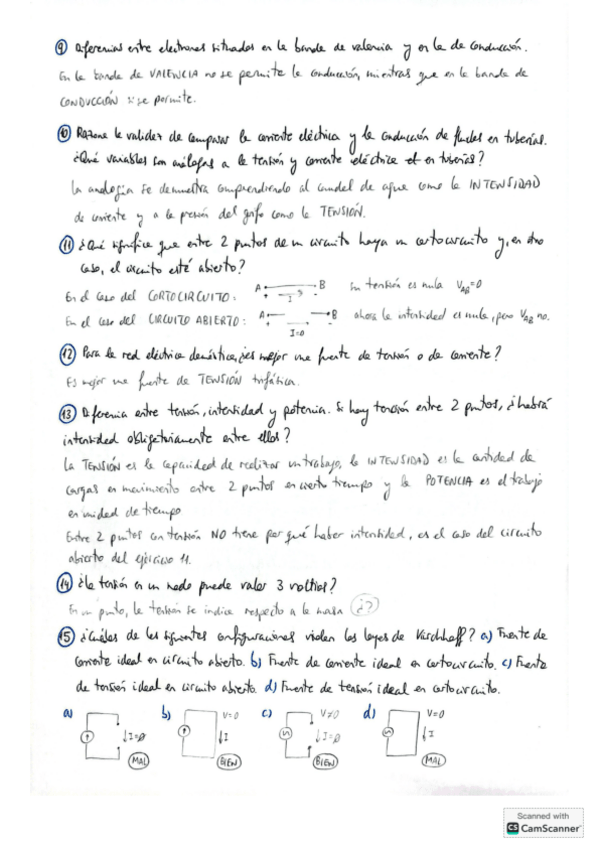 9) Diferencias entre electrones situados en la banda de valencia y en la de conducción.
En la banda de VALENCIA no se permite la conducción, mientras que en la banda de
CONDUCCIÓN si se permite.
10) Razone la validez de comparar la corriente eléctrica y la conducción de fluidos en tuberías.
¿Qué variables son análogas a la tensión y corriente eléctrica en tuberías?
La analogía se demuestra comprendiendo al caudal de agua como la INTENSIDAD
de corriente y a la presión del grifo como la TENSIÓN.
11) ¿Qué significa que entre 2 puntos de un circuito haya un cortocircuito y, en otro
caso, el circuito esté abierto?
En el caso del CORTOCIRCUITO: A B Su tensión es nula VAB=0
+ I -
En el caso del CIRCUITO ABIERTO: A B ahora la intensidad es nula, pero VAB no.
+ - I=0
12) Para la red eléctrica doméstica, ¿es mejor una fuente de tensión o de corriente?
Es mejor una fuente de TENSIÓN trifática.
13) Diferencia entre tensión, intensidad y potencia. Si hay tensión entre 2 puntos, ¿habrá
intensidad obligatoriamente entre ellos?
La TENSIÓN es la capacidad de realizar un trabajo, la INTENSIDAD es la cantidad de
cargas en movimiento entre 2 puntos en cierto tiempo y la POTENCIA es el trabajo
en unidad de tiempo
Entre 2 puntos con tensión NO tiene por qué haber intensidad, es el caso del circuito
abierto del ejercicio 11.
14) ¿La tensión en un nodo puede valer 3 voltios?
En un punto, la tensión se indica respecto a la masa ¿?
15) ¿Cuáles de las siguientes configuraciones violan las leyes de Kirchhoff? a) Fuente de
corriente ideal en circuito abierto. b) Fuente de corriente ideal en cortocircuito. c) Fuente
de tensión ideal en circuito abierto. d) Fuente de tensión ideal en cortocircuito.
a) b) V=0 c) V≠0 d) V=0
↓I=0 ↓I ↓I=0 ↓I
MAL BIEN BIEN MAL
Scanned with
CS CamScanner